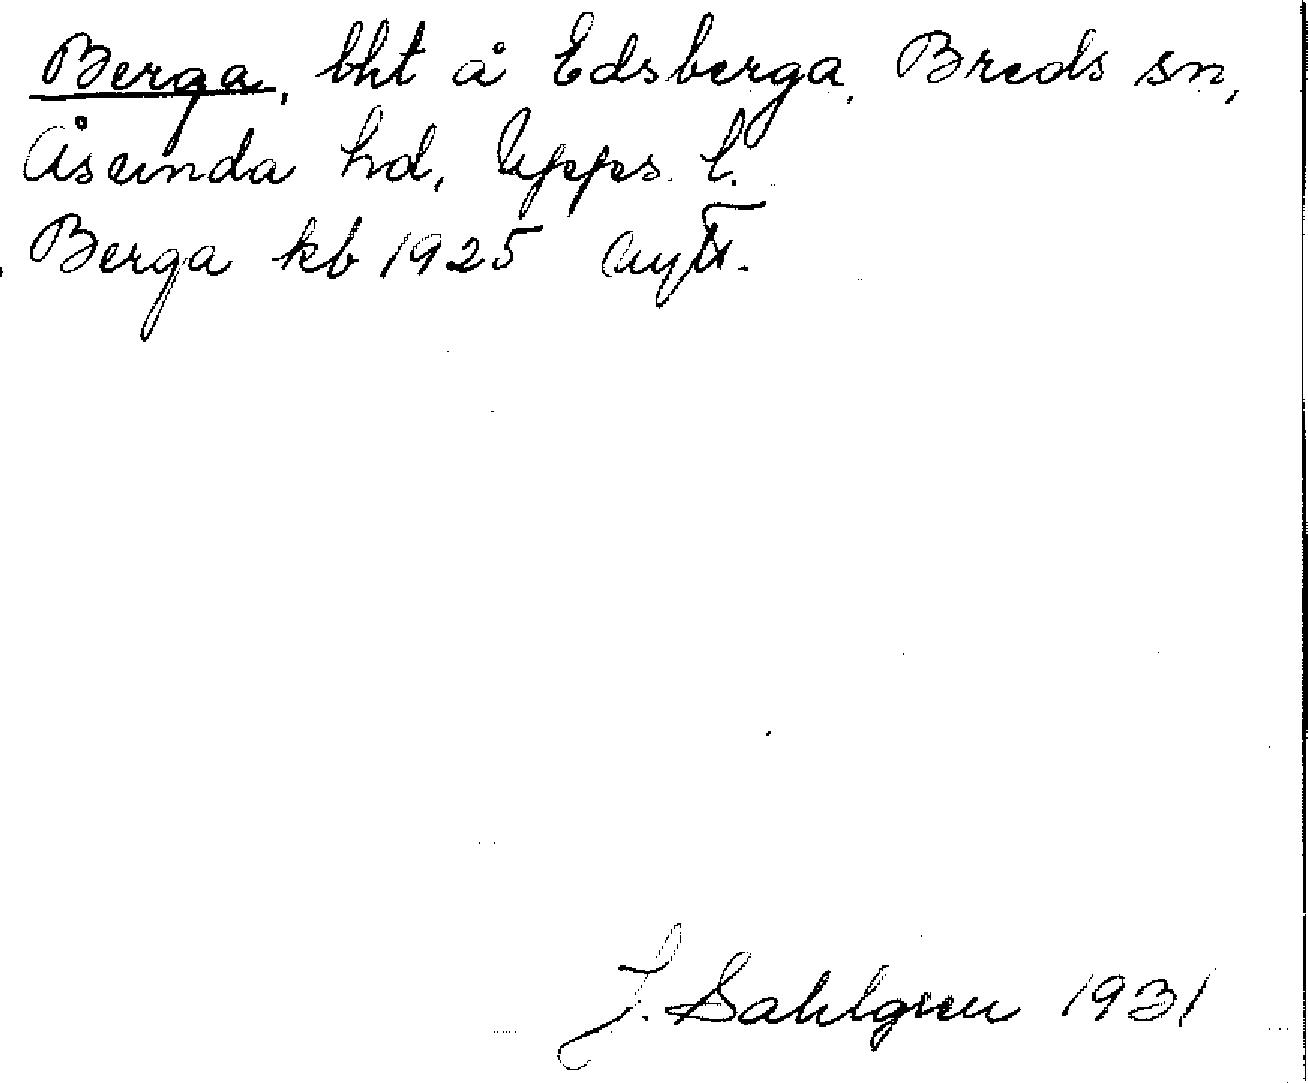 Berga, bht å Edsberga, Breds sn,
Åsunda hd, Upps. l.
Berga kb 1925 nytt.
J. Sahlgren 1931